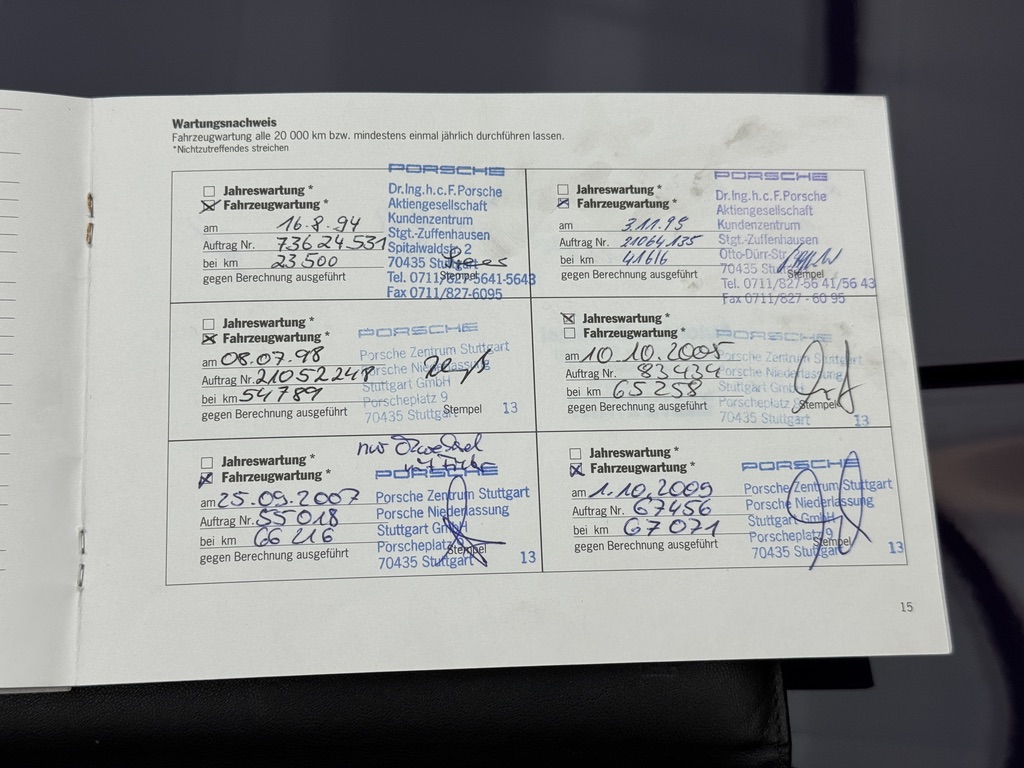 Wartungsnachweis
Fahrzeugwartung alle 20 000 km bzw. mindestens einmal jährlich durchführen lassen.
*Nichtzutreffendes streichen
Jahreswartung *
Fahrzeugwartung *
am 16.8.94
Auftrag Nr. 73624531
bei km 23500
gegen Berechnung ausgeführt
PORSCHE
Dr.Ing.h.c.F.Porsche
Aktiengesellschaft
Kundenzentrum
Stgt.-Zuffenhausen
Spitalwaldstr. 2
70435 Stuttgart
Stempel
Tel. 0711/827-5641-5643
Fax 0711/827-6095
Jahreswartung *
Fahrzeugwartung *
am 3.11.95
Auftrag Nr. 21064135
bei km 41616
gegen Berechnung ausgeführt
PORSCHE
Dr.Ing.h.c.F.Porsche
Aktiengesellschaft
Kundenzentrum
Stgt.-Zuffenhausen
Otto-Dürr-Str.
70435
Stempel
Tel. 0711/827-56 41/56 43
Fax 0711/827 - 60 95
Jahreswartung *
Fahrzeugwartung *
am 08.07.98
Auftrag Nr. 21052248
bei km 54789
gegen Berechnung ausgeführt
PORSCHE
Porsche Zentrum Stuttgart
Porsche Niederlassung
Stuttgart GmbH
Porscheplatz 9
70435 Stuttgart
Stempel 13
Jahreswartung *
Fahrzeugwartung *
am 10.10.2005
Auftrag Nr. 83434
bei km 65258
gegen Berechnung ausgeführt
PORSCHE
Porsche Zentrum Stuttgart
Porsche Niederlassung
Stuttgart GmbH
Porscheplatz
70435 Stuttgart
Stempel
13
nur Ölwechsel
Jahreswartung *
Fahrzeugwartung *
am 25.09.2007
Auftrag Nr. 55018
bei km 66216
gegen Berechnung ausgeführt
PORSCHE
Porsche Zentrum Stuttgart
Porsche Niederlassung
Stuttgart GmbH
Porscheplatz
70435 Stuttgart
Stempel
13
Jahreswartung *
Fahrzeugwartung *
am 1.10.2009
Auftrag Nr. 67456
bei km 67071
gegen Berechnung ausgeführt
PORSCHE
Porsche Zentrum Stuttgart
Porsche Niederlassung
Stuttgart GmbH
Porscheplatz 9
70435 Stuttgart
Stempel
13
15